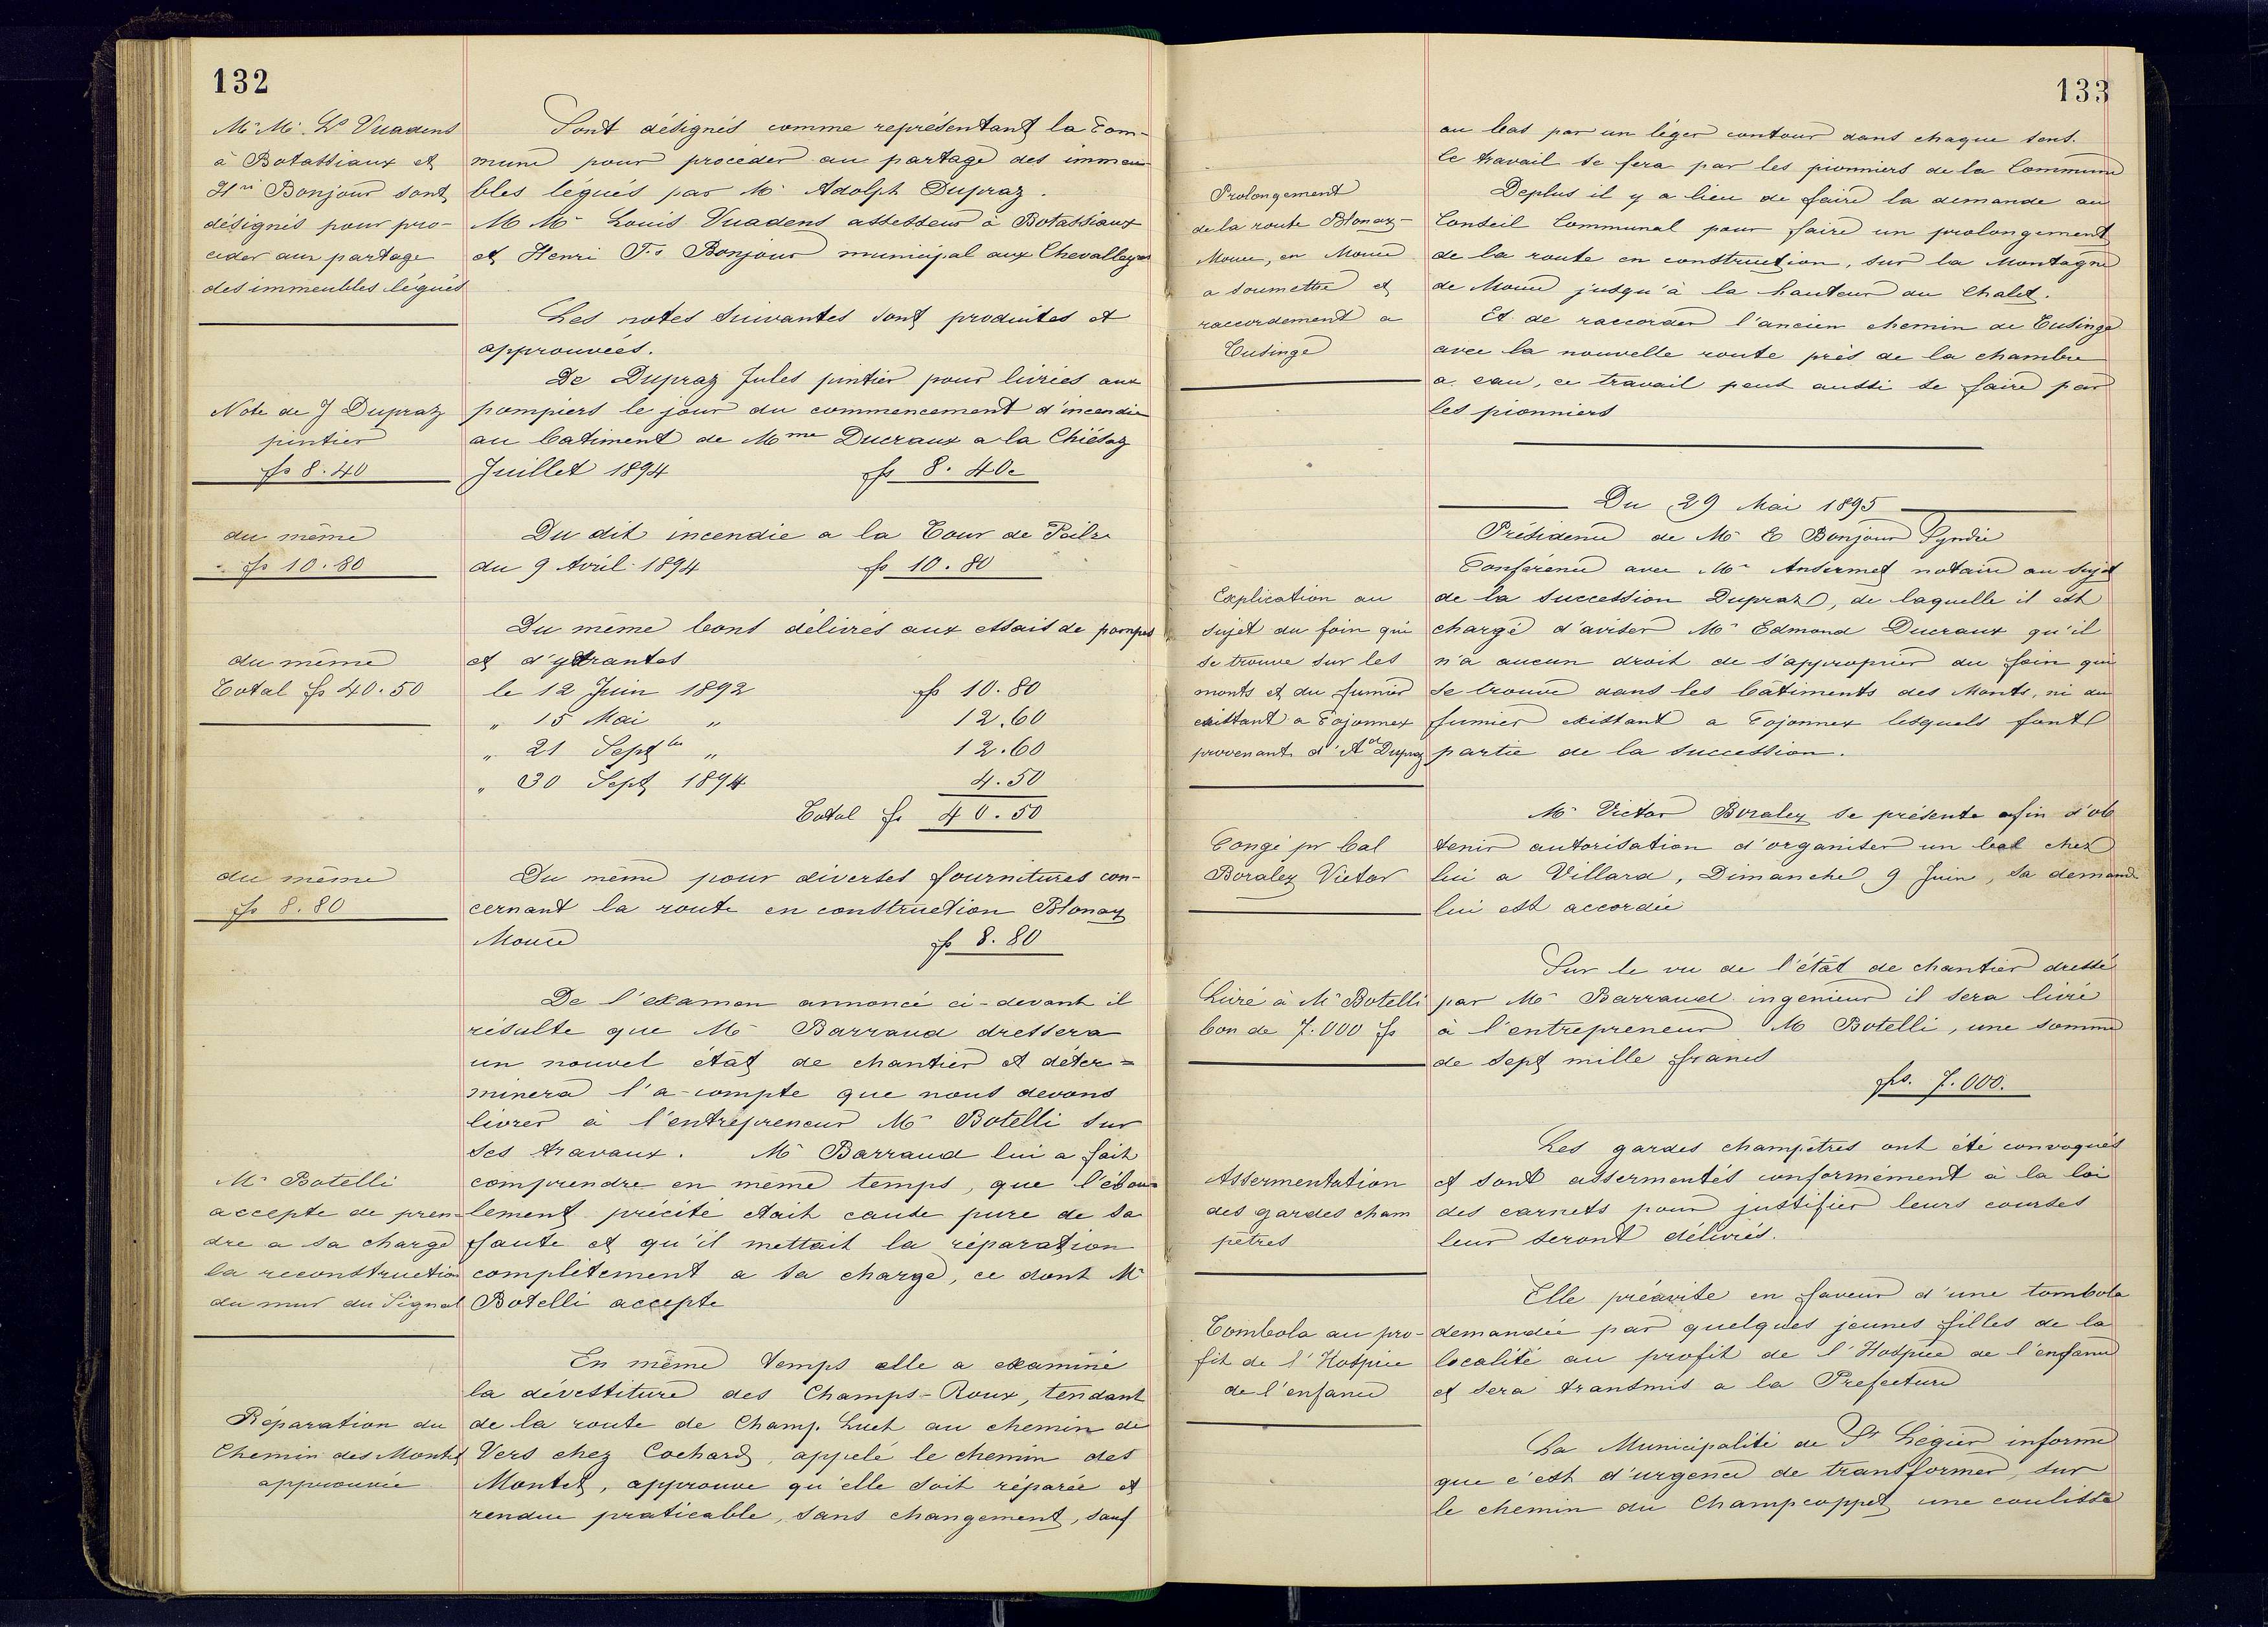 132
M.M. Ls Vuadens
à Botassiaux et
Hri Bonjour sont
désignés pour pro-
céder aux partage
des immeubles légués
Sont désignés comme représentant la Com-
mune pour procéder au partage des immeu
bles légués par M. Adolph Dupraz.
M M. Louis Vuadens assesseur à Botassiaux
et Henri Fs Bonjour municipal aux Chevalleyres
Les notes suivantes sont produites et
approuvées.
Note de J Dupraz
pintier
frs 8.40
De Dupraz Jules pintier pour livrées aux
pompiers le jour du commencement d'incendie
au batiment de Mme Ducraux a la Chiésaz
Juillet 1894 frs 8.40
du même
frs 10.80
Du dit incendie a la Tour de Peilz
du 9 Avril 1894 frs 10.80
du même
Total frs 40.50
Du même bons délivrés aux essais de pompes
et d'ydrantes
le 12 Juin 1892 frs 10.80
" 15 Mai " 12.60
" 21 Septbre " 12.60
" 30 Sept 1894 4.50
Total frs 40.50
du même
frs 8.80
Du même pour diverses fournitures con-
cernant la route en construction Blonay
Mouce frs 8.80
De l'examen annoncé ci-devant il
résulte que Mr Barraud dressera
un nouvel état de chantier et déter=
minera l'a-compte que nous devons
livrer à l'entrepreneur Mr Botelli sur
ses travaux. Mr Barraud lui a fait
Mr Botelli
accepte de pren-
dre a sa charge
la reconstruction
du mur du Signal
comprendre en même temps, que l'ébou-
lement précité était cause pure de sa
faute et qu'il mettait la réparation
complètement a sa charge, ce dont Mr
Botelli accepte
En même temps elle a examiné
la dévestiture des Champs-Roux, tendant
Réparation du
Chemin des Montes
approuvée
de la route de Champ. Luet au chemin de
Vers chez Cochard, appelé le chemin des
Montet, approuve qu'elle soit réparée et
rendue praticable, sans changement, sauf
133
au bas par un léger contour dans chaque sens.
le travail se fera par les pionniers de la Commune
Prolongement
de la route Blonay-
Mouce, en Mouce
a soumettre et
raccordement a
Tusinge
Deplus il y a lieu de faire la demande au
Conseil Communal pour faire un prolongement
de la route en construction, sur la Montagne
de Mouce jusqu'à la hauteur du Chalet.
Et de raccorder l'ancien chemin de Tusinge
avec la nouvelle route près de la chambre
a eau, ce travail peut aussi se faire par
les pionniers
Du 29 Mai 1895
Présidence de Mr E Bonjour Syndic
Explication au
sujet du foin qui
se trouve sur les
monts et du fumier
existant a Cojonnex
provenant d'Ad Dupraz
Conférence avec Mr Ansermet notaire au sujet
de la succession Dupraz, de laquelle il est
chargé d'aviser Mr Edmond Ducraux qu'il
n'a aucun droit de s'approprier du foin qui
se trouve dans les bâtiments des Monts, ni du
fumier existant a Cojonnex lesquels font
partie de la succession.
Congé pr bal
Boraley Victor
Mr Victor Boraley se présente afin d'ob
tenir autorisation d'organiser un bal chez
lui a Villard, Dimanche 9 Juin, sa demande
lui est accordée
Livré à Mr Botelli
bon de 7.000 frs
Sur le vu de l'état de chantier dressé
par Mr Barraud ingenieur il sera livré
à l'entrepreneur M Botelli, une somme
de sept mille francs
frs. 7.000.
Assermentation
des gardes cham
pêtres
Les gardes champêtres ont été convoqués
et sont assermentés conformément à la loi
des carnets pour justifier leurs courses
leur seront délivrés.
Tombola au pro-
fit de l'Hospice
de l'enfance
Elle préavise en faveur d'une tombola
demandée par quelques jeunes filles de la
localité au profit de l'Hospice de l'enfance
et sera transmis a la Prefecture
La Municipalité de St Légier informe
que c'est d'urgence de transformer, sur
le chemin du Champcoppet une coulisse